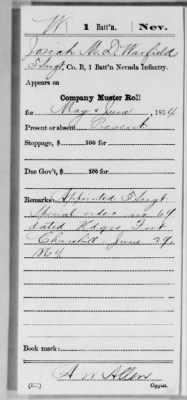 W 1 Batt'n. Nev.
Josiah M. D. Warfield
5 Sergt, Co. B, 1 Batt'n Nevada Infantry.
Appears on
Company Muster Roll
for May & June, 1864
Present or absent Present
Stoppage, $ 100 for
Due Gov't, $ 100 for
Remarks: Appointed 5 Sergt
Special order no 69
dated Hdqrs Fort
Churchill June 29th
1864
Book mark:
A W Allen
(251) Copyist.